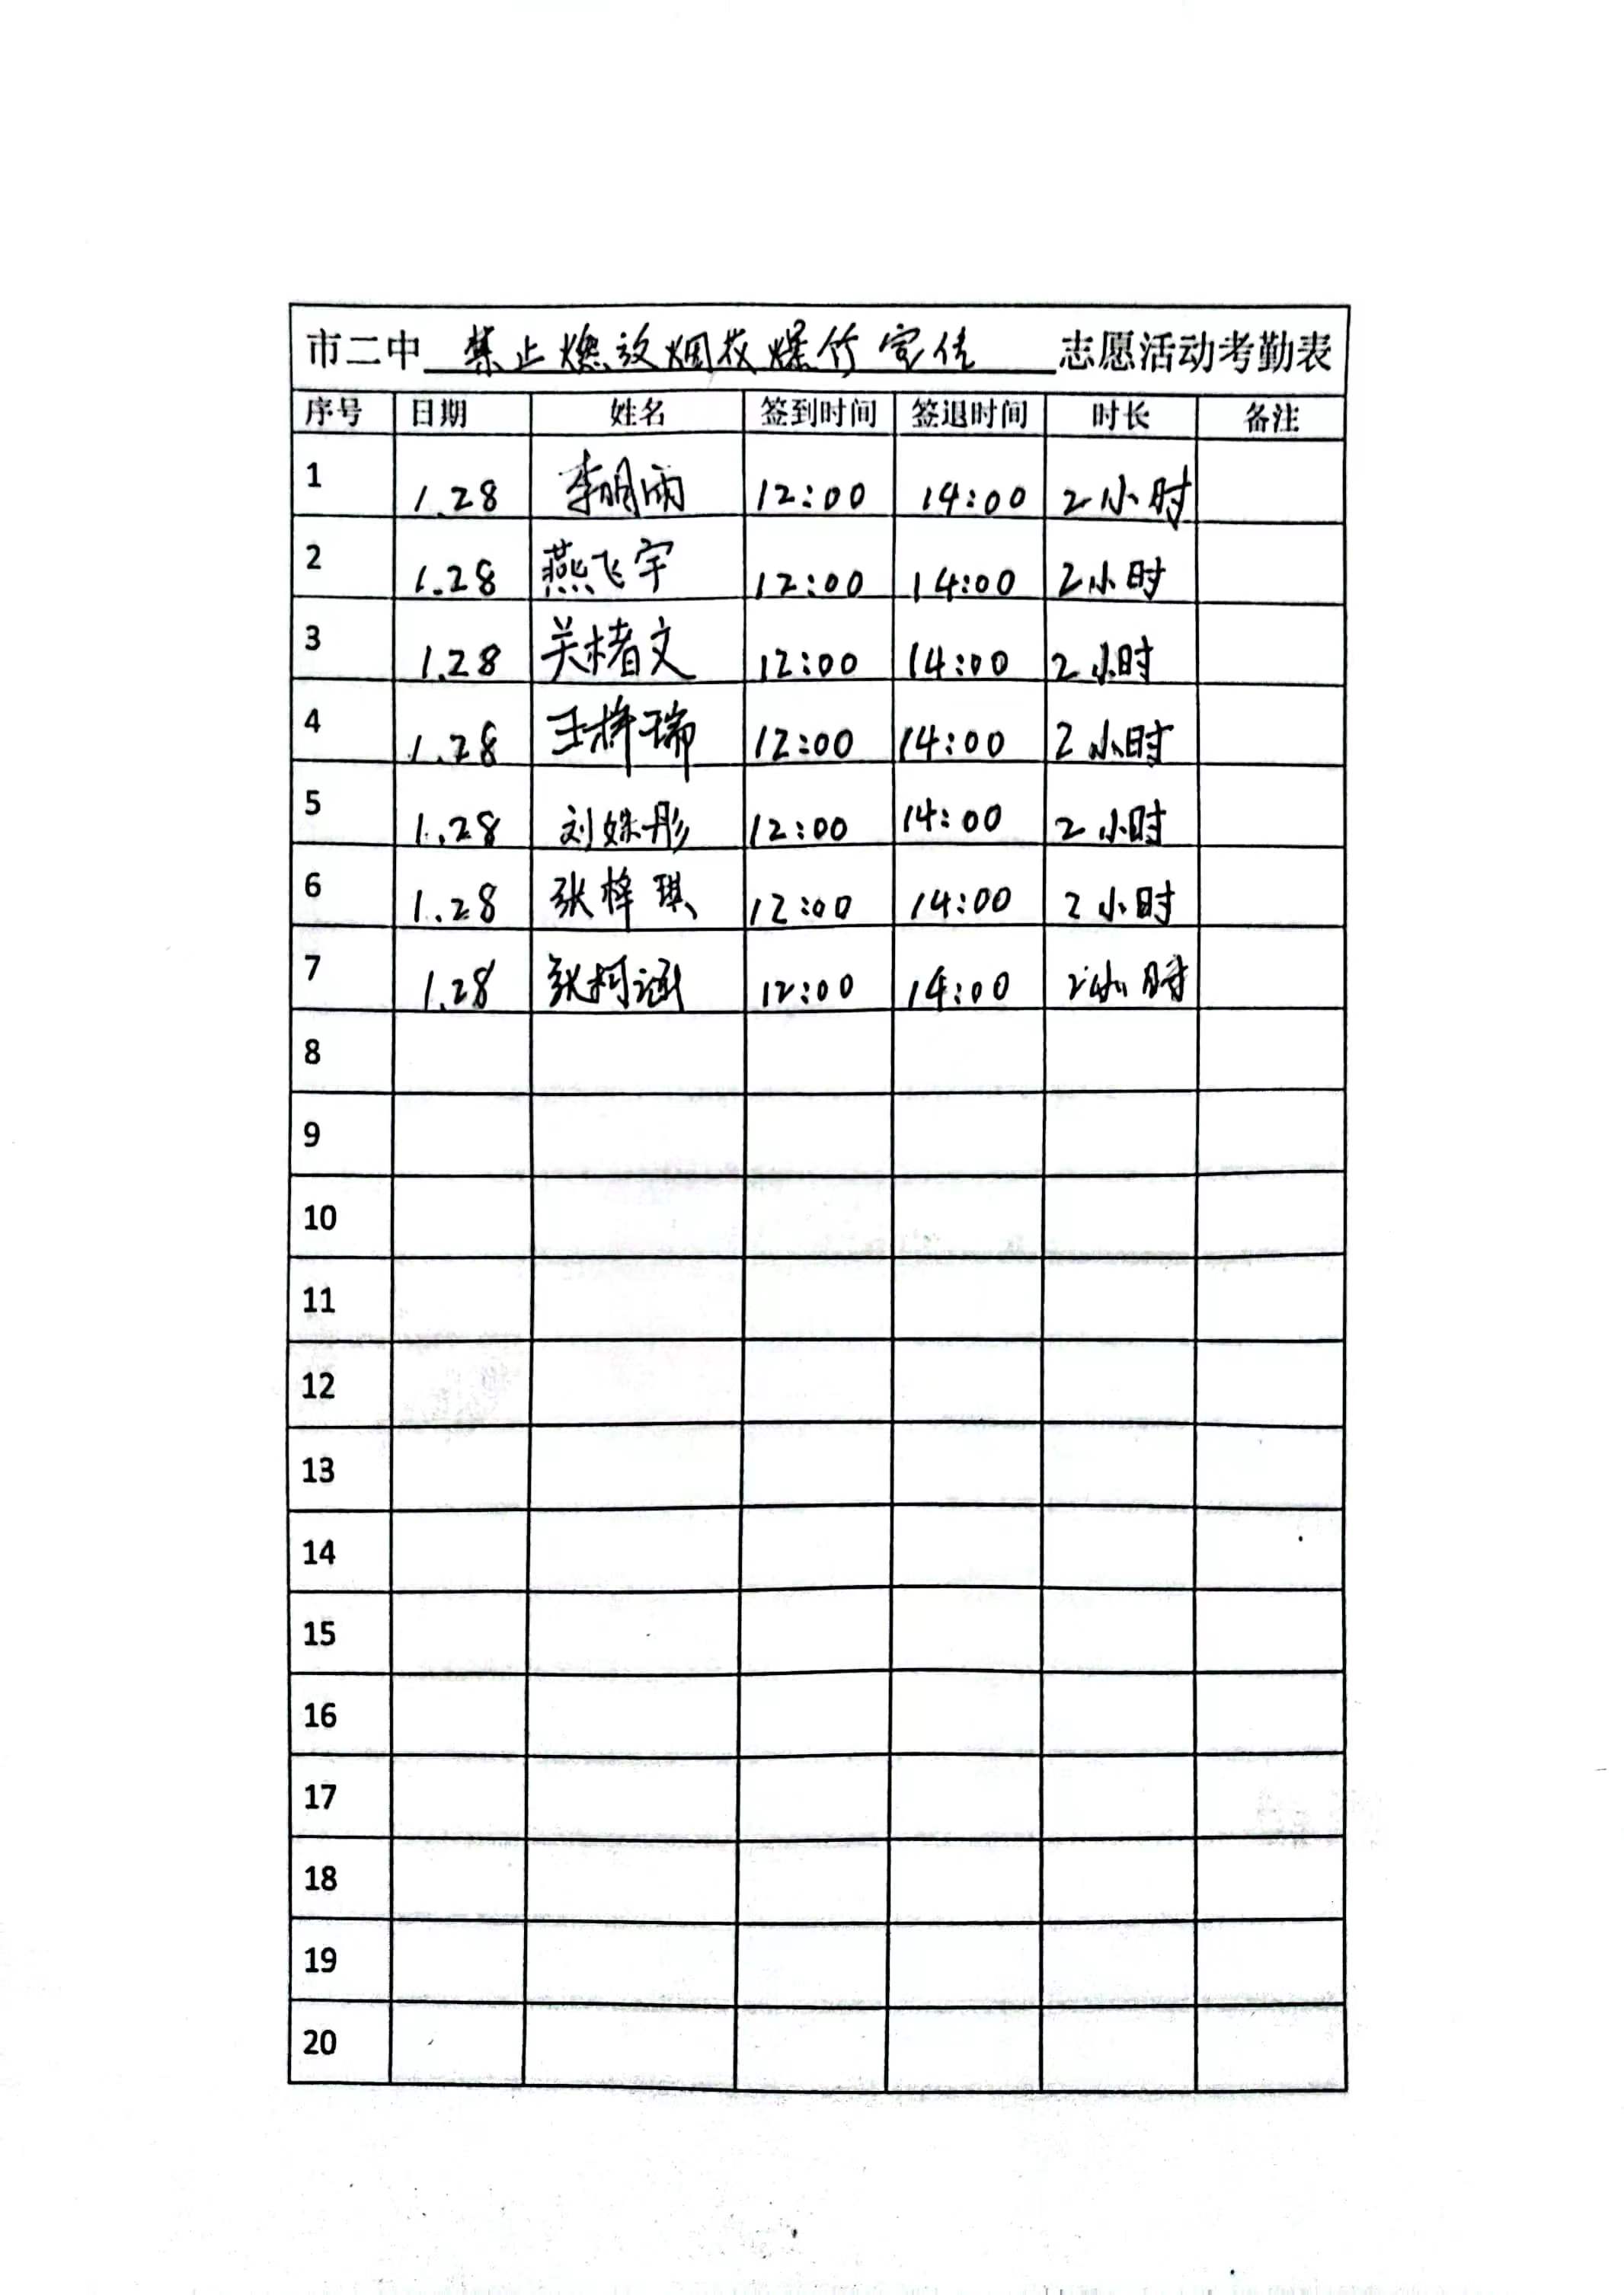 市二中 禁止燃放烟花爆竹宣传 志愿活动考勤表
序号 日期 姓名 签到时间 签退时间 时长 备注
1 1.28 李明雨 12:00 14:00 2小时
2 1.28 燕飞宇 12:00 14:00 2小时
3 1.28 关楮文 12:00 14:00 2小时
4 1.28 王梓瑞 12:00 14:00 2小时
5 1.28 刘姝彤 12:00 14:00 2小时
6 1.28 张梓琪 12:00 14:00 2小时
7 1.28 张柯涵 12:00 14:00 2小时
8
9
10
11
12
13
14
15
16
17
18
19
20